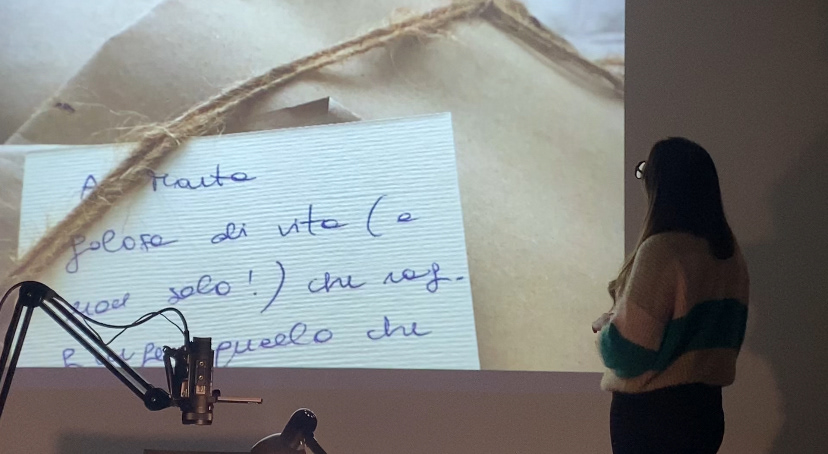 A Marta
golosa di vita (e
non solo!) che rag-
giunge quello che